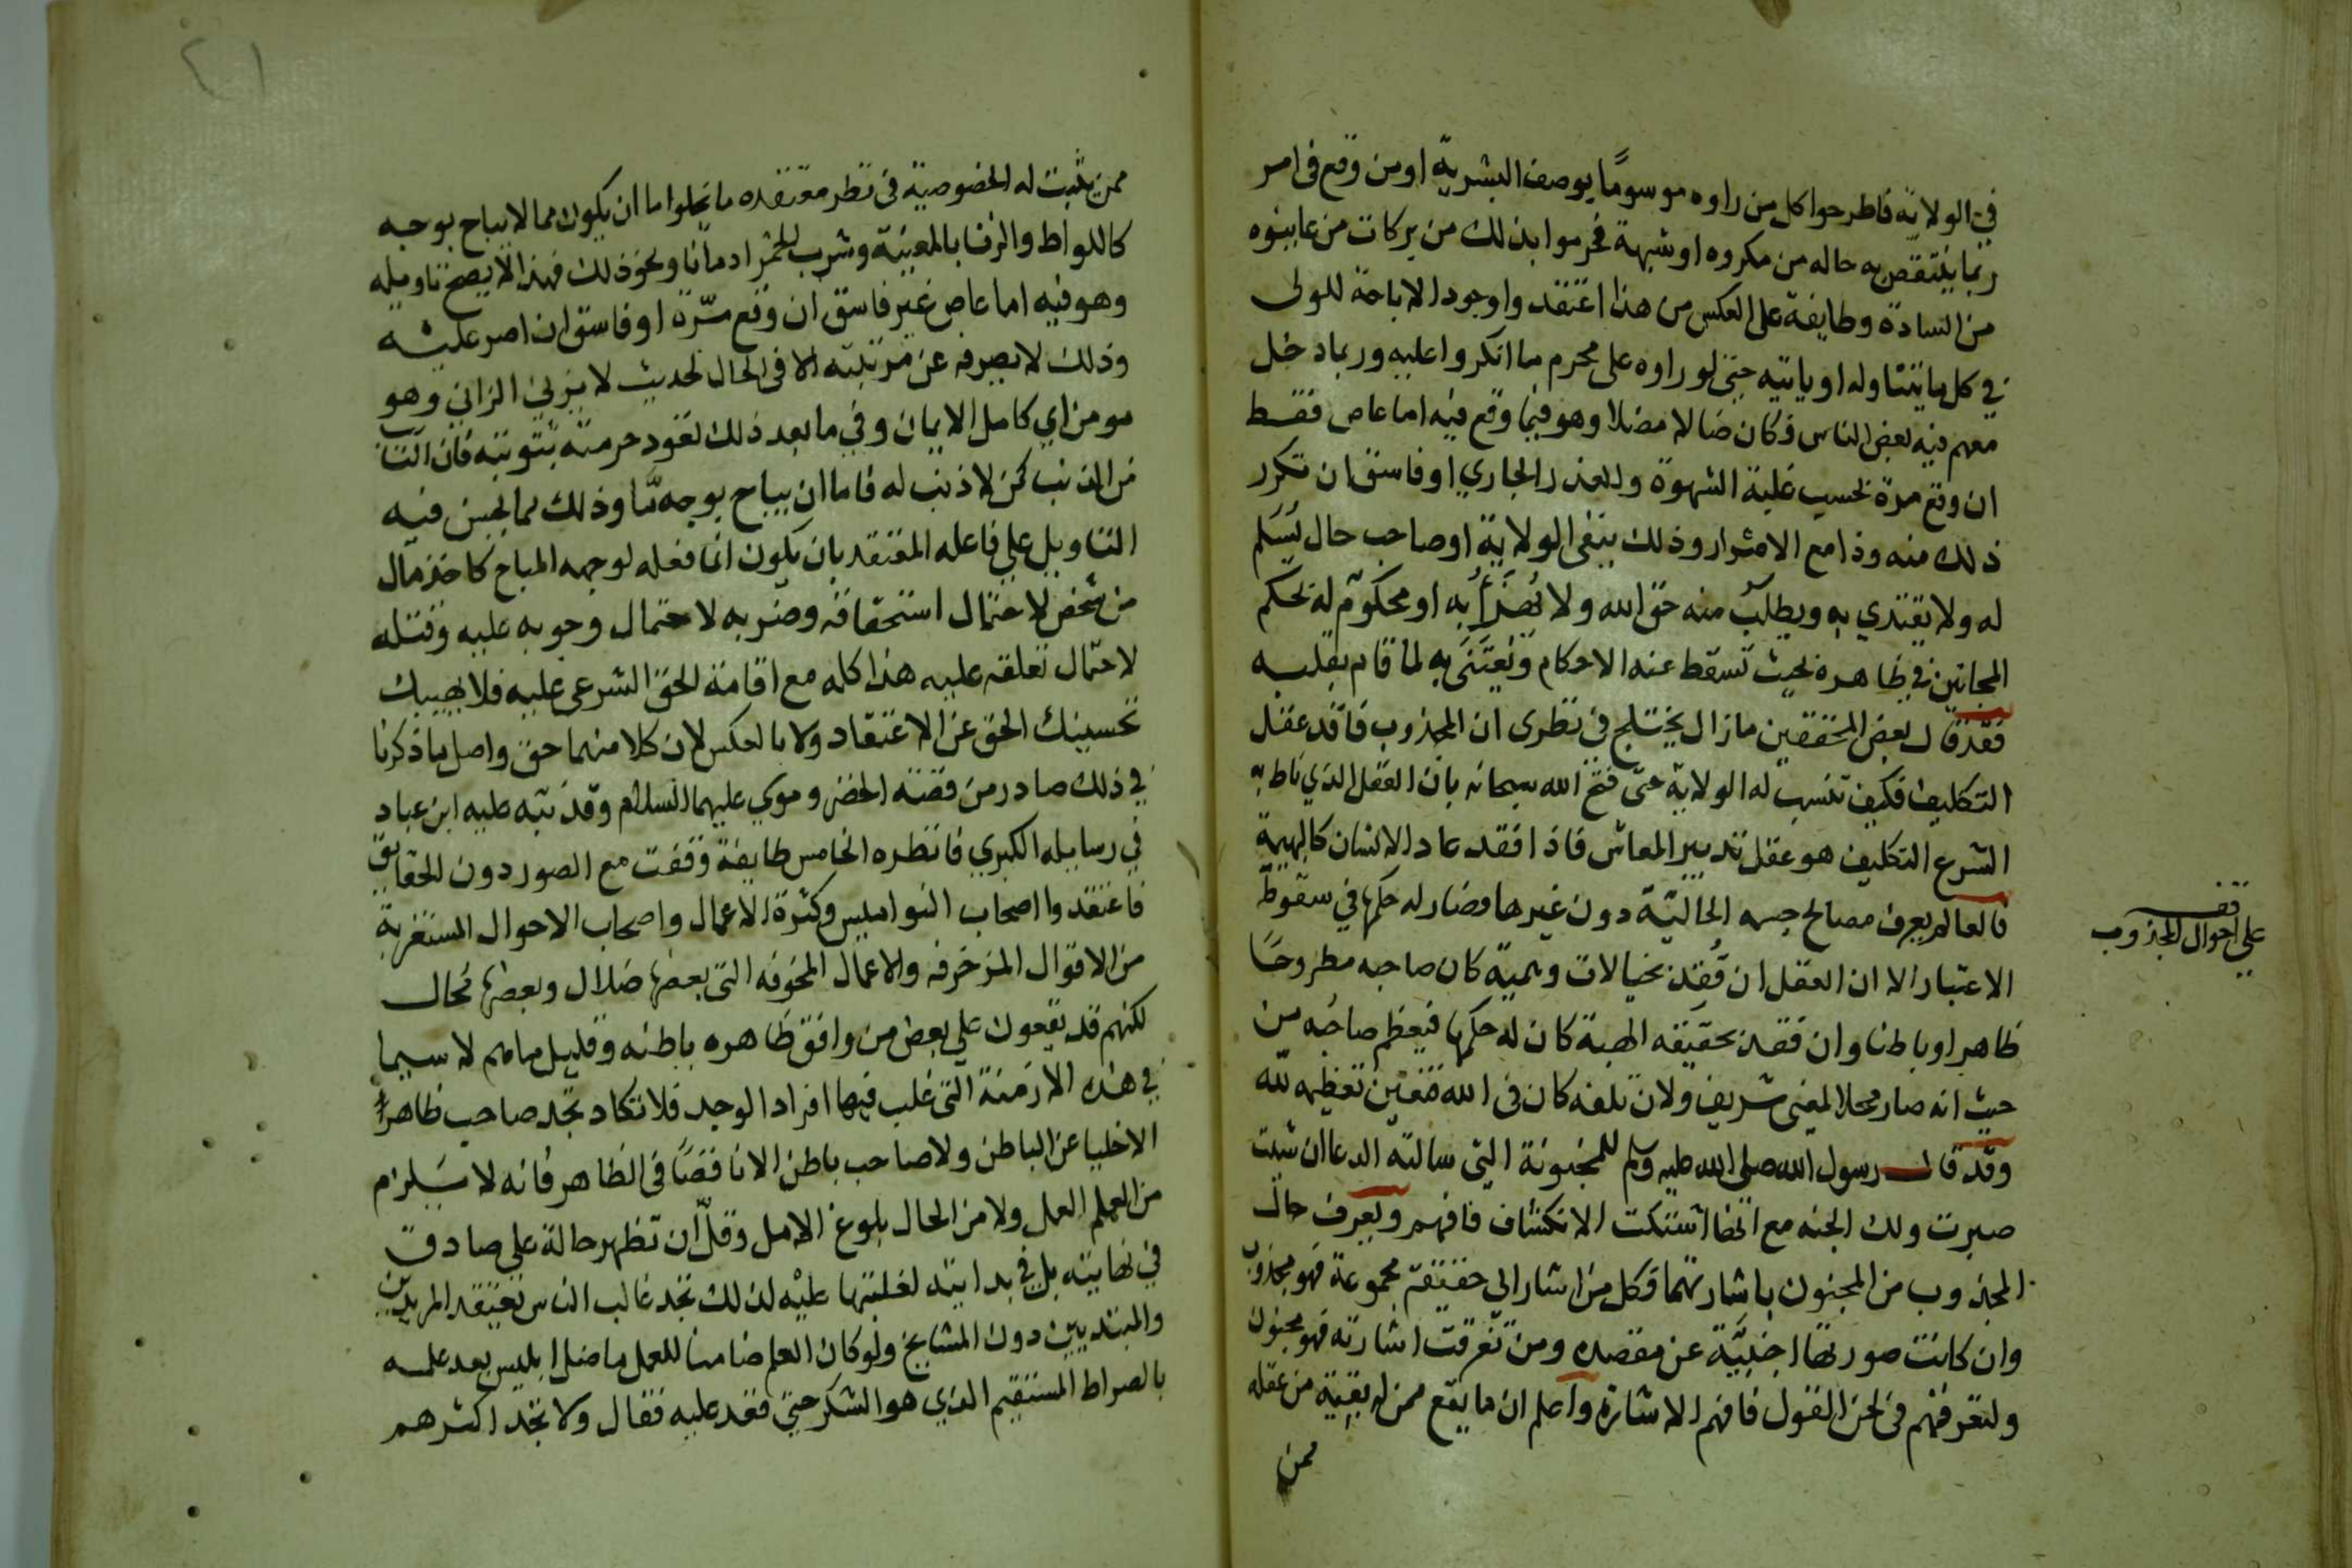 في الولاية فاطرحوا كل من راوه موسومًا بوصف البشرية او من وقع في امر
ربما ينتقص به حاله من مكروه او شبهة فحرموا بذلك من بركات من عاينوه
من السادة وطايفة على العكس من هذا اعتقدوا وجود الاباحة للولى
في كل ما يتناوله او ياتيه حتى لو راوه على محرم ما انكروا عليه وربما دخل
معهم فيه بعض الناس فكان ضالا مضلا وهو فيما وقع فيه اما عاص فقط
ان وقع مرة بحسب غلبة الشهوة والقدر الجاري او فاسق ان تكرر
ذلك منه وذا مع الاصرار وذلك ينفى الولاية او صاحب حال يُسَلم
له ولا يقتدي به ويطلب منه حق الله ولا يُهْزَأُ به او محكوم له بحكم
المجانين في ظاهره بحيث تسقط عنه الاحكام ويُعتَنَى به لما قام بقلبه
فقد قال بعض المحققين مازال يختلج في نظرى ان المجذوب فاقد عقل
التكليف فكيف تنسب له الولاية حتى فتح الله سبحانه بان العقل الذي ناط به
الشرع التكليف هو عقل تدبير المعاش فاذا فقد عاد الانسان كالبهيمة
فالعالم يعرف مصالح جسمه الحالية دون غيرها وصار له حكمها في سقوط
الاعتبار الا ان العقل ان فُقِد بخيالات وهمية كان صاحبه مطروحًا
ظاهرا وباطنا وان فقد بحقيقه الهية كان له حكمها فيعظم صاحبه من
حيث انه صار محلا لمعنى شريف ولان تلفه كان في الله فتعين تعظيمه لله
وقد قال رسول الله صلى الله عليه وسلم للمجنونة التى سالته الدعا ان شيت
صبرت ولك الجنه مع انها اشتكت الانكشاف فافهم ويعرف حال
المجذوب من المجنون باشارتهما فكل من اشار الى حقيقة مجموعة فهو مجذوب
وان كانت صورتها اجنبيَّة عن مقصده ومن تفرقت اشارته فهو مجنون
ولتعرفنهم في لحن القول فافهم الاشارة واعلم ان ما يقع ممن له بقية من عقله
ممن
قف
على احوال المجذوب
٢١
ممن يثبت له الخصوصية في نظر معتقده ما يخلوا اما ان يكون مما لا يباح بوجه
كاللواط والزنا بالمعينة وشرب الخمر ادمانا ونحو ذلك فهذا لا يصح تاويله
وهو فيه اما عاص غير فاسق ان وقع مرّة او فاسق ان اصر عليه
وذلك لا يصرفه عن مرتبته الا في الحال لحديث لا يزني الزاني وهو
مومن اي كامل الايمان وفي ما بعد ذلك تعود حرمته بتوبته فان التايب
من الذنب كمن لا ذنب له فاما ان يباح بوجه مّا وذلك مما يحسن فيه
التاويل على فاعله المعتقد بان يكون انما فعله لوجهه المباح كاخذ مال
من شخص لاحتمال استحقاقه وضربه لاحتمال وجوبه عليه وقتله
لاحتمال تعلقه عليه هذا كله مع اقامة الحق الشرعى عليه فلا يصيبك
تحسينك الحق عن الاعتقاد ولا بالعكس لان كلا منهما حق واصل ما ذكرنا
في ذلك صادر من قصة الخضر وموسي عليهما السلام وقد نبه عليه ابن عباد
في رسايله الكبري فانظره الخامس طايفة وقفت مع الصور دون الحقايق
فاعتقدوا اصحاب النواميس وكثرة الاعمال واصحاب الاحوال المستغربة
من الاقوال المزخرفه والاعمال المخوفه التى بعضها ضلال وبعضها محال
لكنهم قد يقعون على بعض من وافق ظاهره باطنه وقليل ما هم لا سيما
في هذه الازمنة التى غلب فيها افراد الوجد فلا تكاد تجد صاحب ظاهر
الاخليا عن الباطن ولا صاحب باطن الا ناقصًا في الظاهر فانه لا يستلزم
من العلم العمل ولا من الحال بلوغ الامل وقلّ ان تظهر حالة على صادق
في نهايته بل في بدايته لغلبتها عليه لذلك تجد غالب الناس تعتقد المريدين
والمبتديين دون المشايخ ولو كان العلم ضامنا للعمل ما ضل ابليس بعد علمه
بالصراط المستقيم الذي هو الشكر حتى قعد عليه فقال ولا تجد اكثرهم